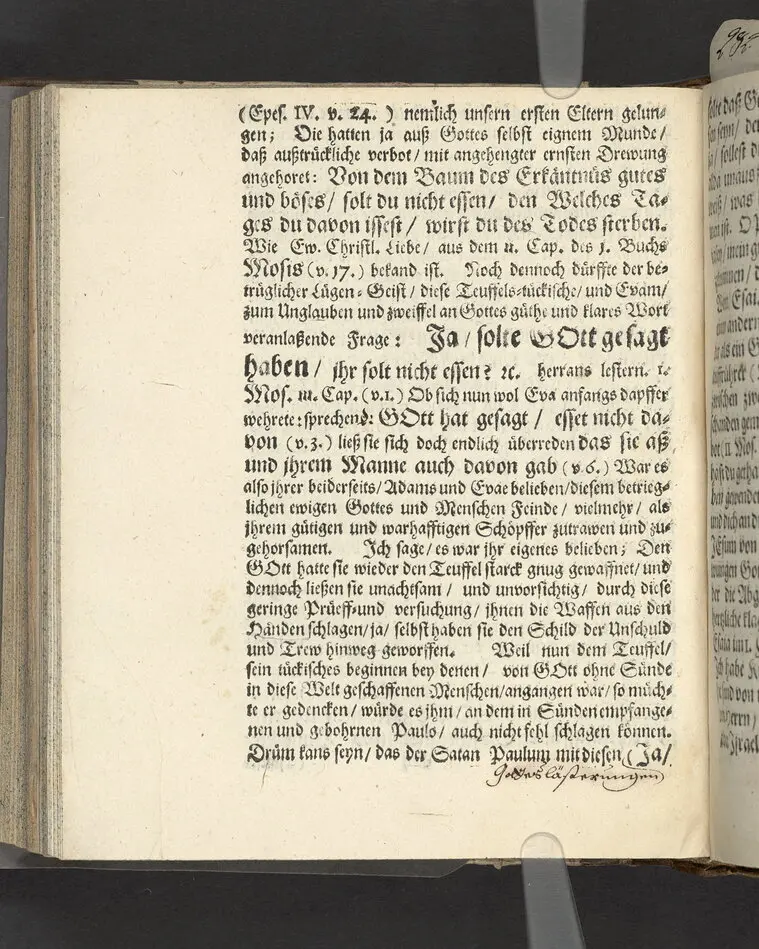 (Epes. IV. v. 24. ) nemlich unsern ersten Eltern gelun-
gen; Die hatten ja auß Gottes selbst eignem Munde/
daß außtrückliche verbot/ mit angehengter ernsten Drewung
angehoret: Von dem Baum des Erkäntnüs gutes
und böses/ solt du nicht essen/ den Welches Ta-
ges du davon issest/ wirst du des Todes sterben.
Wie Ew. Christl. Liebe/ aus dem II. Cap. des I. Buchs
Mosis (v. 17.) bekand ist. Noch dennoch dürffte der be-
trüglicher Lügen-Geist/ diese Teuffels-tückische/ und Evam/
zum Unglauben und zweiffel an Gottes güthe und klares Wort
veranlaßende Frage: Ja/ solte GOtt gesagt
haben/ ihr solt nicht essen? ec. herraus lestern. I.
Mos. III. Cap. (v. 1.) Ob sich nun wol Eva anfangs dapffer
wehrete: sprechend: GOtt hat gesagt/ esset nicht da-
von (v. 3.) ließ sie sich doch endlich überreden das sie aß,
und jhrem Manne auch davon gab (v. 6.) War es
also jhrer beiderseits/ Adams und Evae belieben/ diesem betrieg-
lichen ewigen Gottes und Menschen Feinde/ vielmehr/ als
jhrem gütigen und warhafftigen Schöpffer zutrawen und zu-
gehorsamen. Ich sage/ es war jhr eigenes belieben; Den
GOtt hatte sie wieder den Teuffel starck gnug gewaffnet/ und
dennoch ließen sie unachtsam/ und unvorsichtig/ durch diese
geringe Prüeff- und versuchung/ jhnen die Waffen aus den
Händen schlagen/ ja/ selbst haben sie den Schild der Unschuld
und Trew hinweg geworffen. Weil nun dem Teuffel/
sein tückisches beginnen bey denen/ von GOtt ohne Sünde
in diese Welt geschaffenen Menschen/ angangen war/ so müch-
te er gedencken/ würde es jhm/ an dem in Sünden empfange-
nen und gebohrnen Paulo/ auch nicht fehl schlagen können.
Drüm kans seyn/ das der Satan Paulum mit diesen (Ja/
Gotteslästerungen)